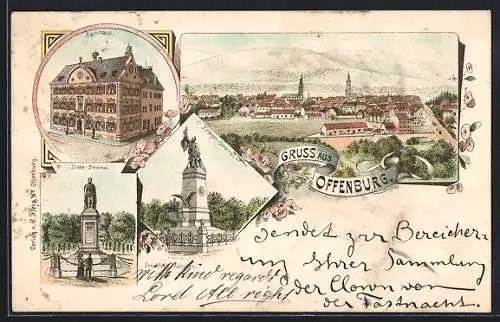 Rathaus.
GRUSS AUS
OFFENBURG.
Drake-Denkmal
Sendet zur Bereicher-
ung Ihrer Sammlung
der Clown von
der Fastnacht.
with kind regards
Lord All right